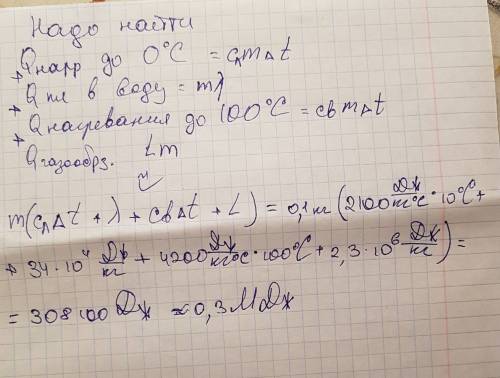 Надо найти
Qнагр до 0°C = cлmΔt
+
Qпл в воду = mλ
+
Qнагревания до 100°C = cвmΔt
+
Qгазообрз. Lm
m(cлΔt + λ + cвΔt + L) = 0,1кг (2100 Дж/кг°C · 10°C +
+ 34·10⁴ Дж/кг + 4200 Дж/кг°C · 100°C + 2,3·10⁶ Дж/кг) =
= 308100 Дж ≈ 0,3 МДж